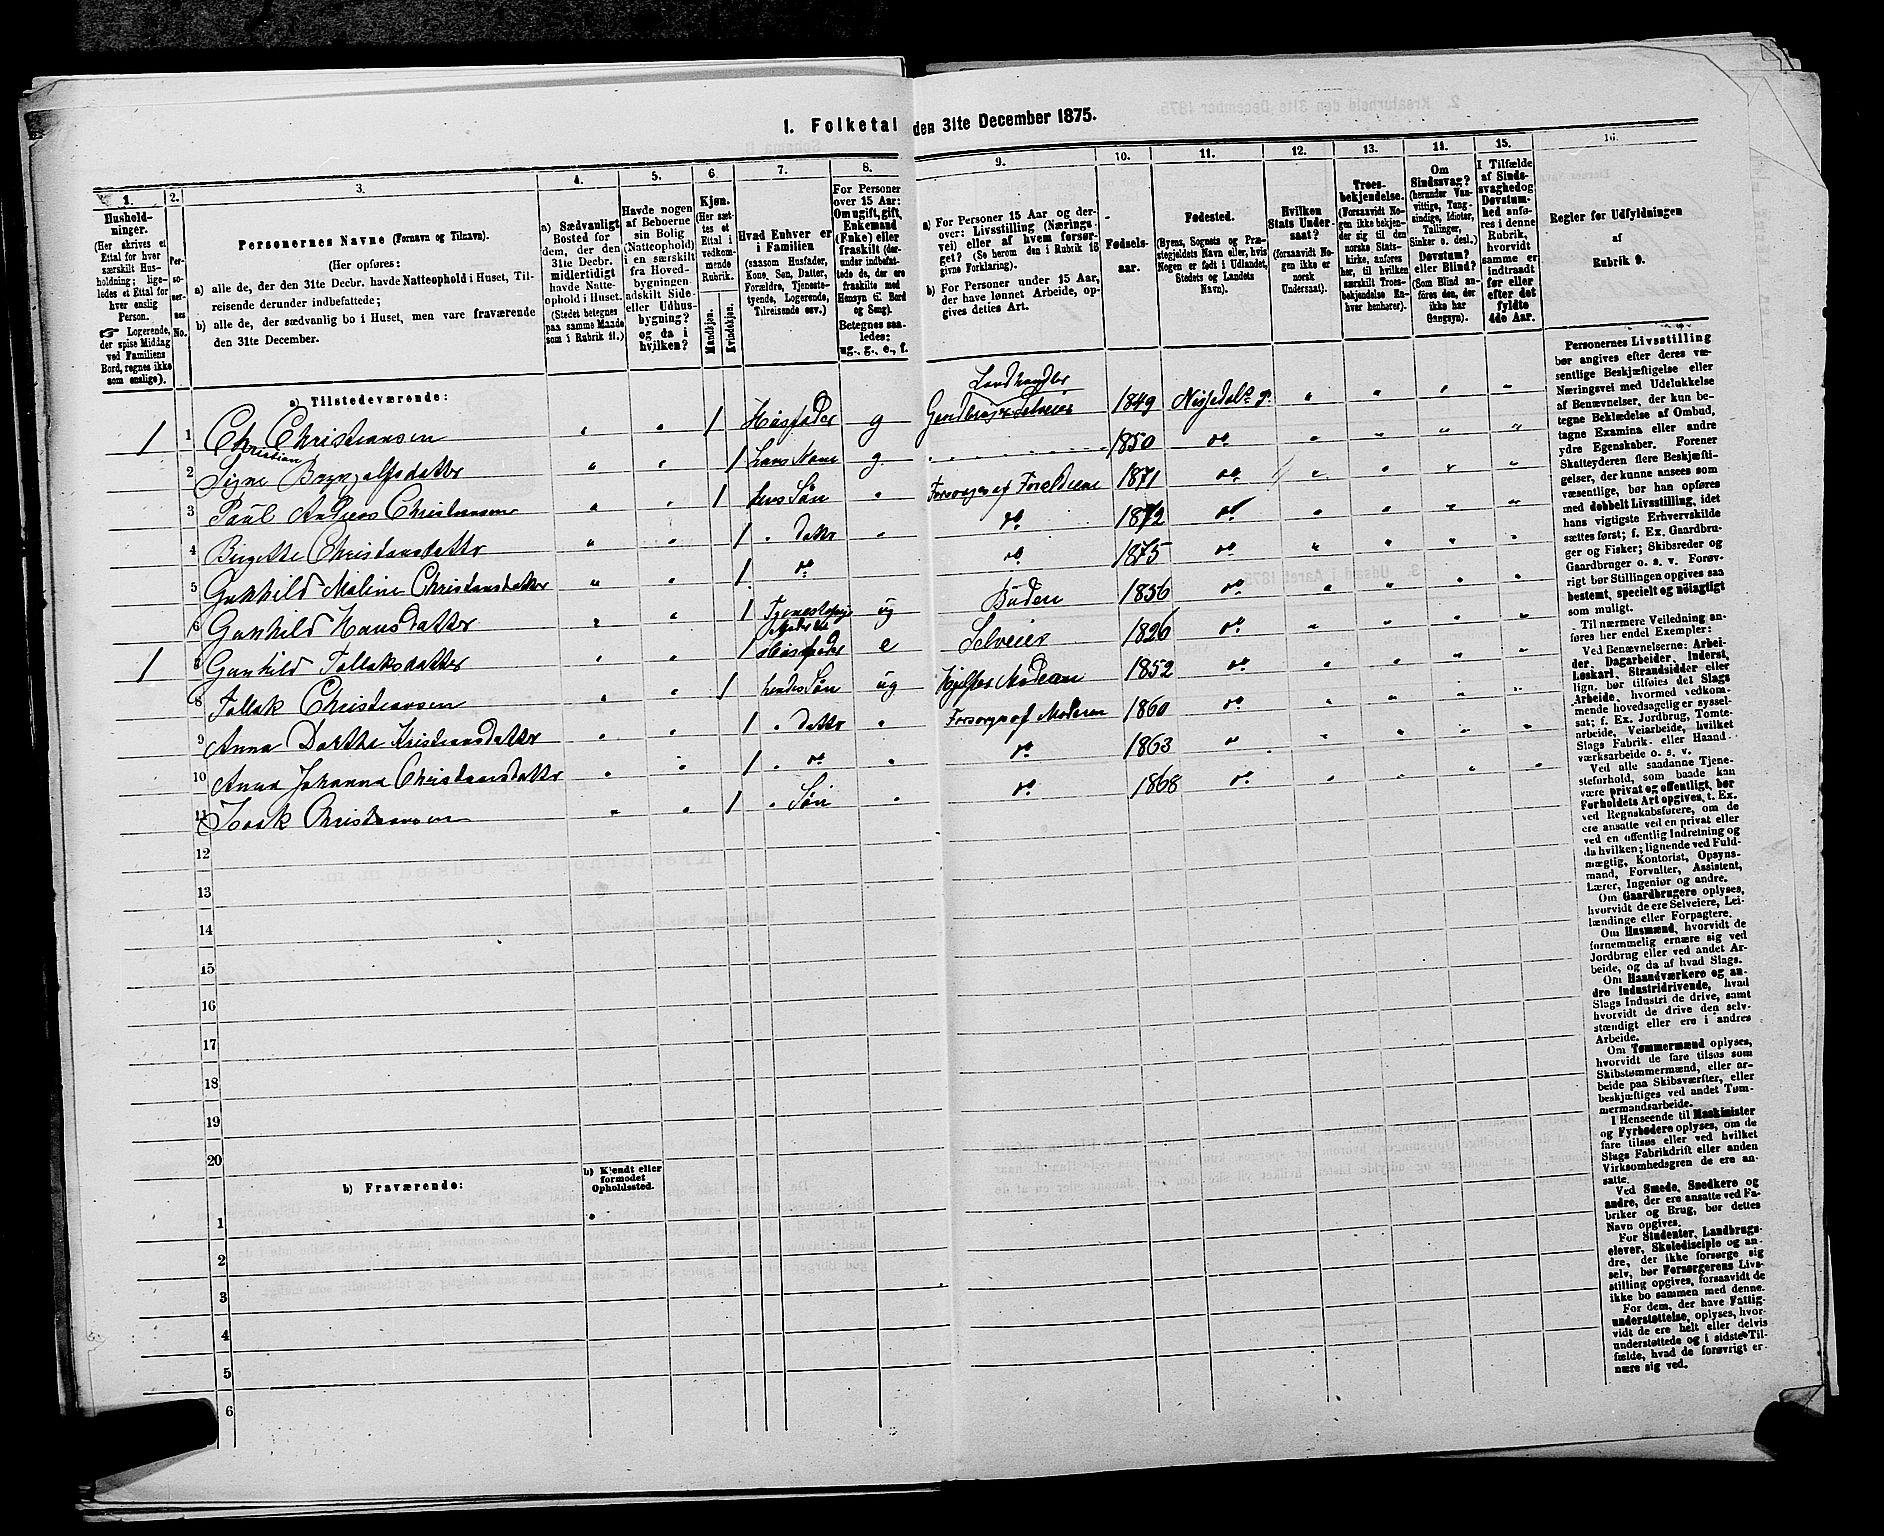 1. Folketal den 31te December 1875.
1.
Hushold-
ninger.
(Her skrives et
Ettal for hver
særskilt Hus-
holdning; lige-
ledes et Ettal for
hver enslig
Person.
☞ Logerende,
der spise Middag
ved Familiens
Bord, regnes ikke
som enslige).
2.
Per-
so-
ner-
nes
No.
3.
Personernes Navne (Fornavn og Tilnavn).
(Her opføres:
a) alle de, der den 31te Decbr. havde Natteophold i Huset, Til-
reisende derunder indbefattede;
b) alle de, der sædvanlig bo i Huset, men vare fraværende
den 31te December.
4.
a) Sædvanligt
Bosted for
dem, der den
31te Decbr.
midlertidigt
havde Natte-
ophold i Huset.
(Stedet betegnes
paa samme Maade
som i Rubrik 11.)
5.
Havde nogen
af Beboerne
sin Bolig
(Natteophold)
i en særskilt
fra Hoved-
bygningen
adskilt Side-
eller Udhus-
bygning?
og da i
hvilken?
6
Kjøn.
(Her sæt-
tes et
Ettal i
vedkom-
mende
Rubrik.
Mandkjøn.
Kvindekjøn.
7.
Hvad Enhver er
i Familien
(saasom Husfader,
Kone, Søn, Datter,
Forældre, Tjeneste-
tyende, Logerende,
Tilreisende osv.)
8.
For Personer
over 15 Aar:
Om ugift, gift,
Enkemand
(Enke) eller
fraskilt (der-
under indbefat-
tede de, der ere
fraskilte med
Hensyn til Bord
og Seng).
Betegnes saa-
ledes:
ug., g., e., f.
9.
a) For Personer 15 Aar og der-
over: Livsstilling (Nærings-
vei) eller af hvem forsør-
get? (Se herom den i Rubrik 16
givne Forklaring).
b) For Personer under 15 Aar,
der have lønnet Arbeide, op-
gives dettes Art.
10.
Fødsels-
aar.
11.
Fødested.
(Byens, Sognets og Præ-
stegjeldets Navn, eller, hvis
Nogen er født i Udlandet,
Stedets og Landets
Navn).
12.
Hvilken
Stats Under-
saat?
(forsaavidt No-
gen ikke er
norsk
Undersaat).
13.
Troes-
bekjendelse.
(Forsaavidt No-
gen ikke bekjen-
der sig til den
norske Stats-
kirke, anføres
her, til hvilken
særskilt Troes-
bekjendelse En-
hver henhører).
14.
Om
Sindssvag?
(herunder Van-
vittige, Tung-
sindige, Idioter,
Tullinger,
Sinker o. desl.)
Døvstum?
eller Blind?
(Som Blind an-
føres den, der
ikke har
Gangsyn).
15.
I Tilfælde
af Sinds-
svaghed og
Døvstum-
hed anfø-
res i denne
Rubrik,
hvorvidt
samme er
indtraadt
før eller
efter det
fyldte
4de Aar.
16.
Regler for Udfyldningen
af
Rubrik 9.
a) Tilstedeværende:
Landhandler
1 1 Chr Christiansen 1 Husfader g Gaardbruger Selveier 1849 Nissedals g.
Christian
2 Signe Brynjulfsdatter 1 hans Kone g. 1850 do
3 Paul Andreas Christiansen 1 hans Søn Forsørges af Foreldrene 1871 do
4 Birgette Christiansdatter 1 Datter do 1872 do
5 Gunhild Maline Christiansdatter 1 do do 1875 do
6 Gunhild Hansdatter 1 Tjenestepige ug Buden 1856 do
1 Gunhild Tallaksdatter 1 Moder til Husfader e Selveier 1826 do
8 Tallak Christiansen 1 hendes Søn ug Hjelper Moderen 1852 do
9 Anna Dorthe Kristiansdatter 1 datter Forsørges af Moderen 1860 do
10 Anna Johanna Christiansdatter 1 do do 1863 do
11 Isak Christiansen 1 Søn do 1868 do
12
13
14
15
16
17
18
19
20
b) Fraværende:
b) Kjendt eller
formodet
Opholdssted.
1
2
3
4
5
6
Personernes Livsstilling
bør angives efter deres væ-
sentlige Beskjæftigelse eller
Næringsvei med Udelukkelse
af Benævnelser, der kun be-
tegne Beklædelse af Ombud,
tagne Examina eller andre
ydre Egenskaber. Forener
Skatteyderen flere Beskjæfti-
gelser, der kunne ansees som
væsentlige, bør han opføres
med dobbelt Livsstilling, idet
hans vigtigste Erhvervskilde
sættes først; f. Ex. Gaardbru-
ger og Fisker; Skibsreder og
Gaardbruger o. s. v. Forøv-
rigt bør Stillingen opgives saa
bestemt, specielt og nøiagtigt
som muligt.
Til nærmere Veiledning an-
føres her endel Exempler:
Ved Benævnelserne: Arbei-
der, Dagarbeider, Inderst,
Løskarl, Strandsidder eller
lign. bør tilføies det Slags
Arbeide, hvormed vedkom-
mende hovedsagelig er syssel-
sat; f. Ex. Jordbrug, Tomte-
arbeide, Veiarbeide, hvilket
Slags Fabrik- eller Haand-
værksarbeide o. s. v.
Ved alle saadanne Tjene-
steforhold, som baade kan
være privat og offentligt, bør
Forholdets Art opgives, t. Ex.
ved Regnskabsførere, om de
ere ansatte ved en privat eller
ved en offentlig Indretning og
da hvilken; lignende ved Fuld-
mægtig, Kontorist, Opsyns-
mand, Forvalter, Assistent,
Lærer, Ingeniør og andre.
Om Gaardbrugere oplyses,
hvorvidt de ere Selveiere, Lei-
lændinge eller Forpagtere.
Om Husmænd, hvorvidt de
fornemmelig ernære sig ved
Jordbrug eller ved andet Ar-
beide, og da af hvad Slags.
Om Haandværkere og an-
dre Industridrivende, hvad
Slags Industri de drive, samt
hvorvidt de drive den selv-
stændigt eller ere i andres
Arbeide.
Om Tømmermænd oplyses,
hvorvidt de fare tilsøs som
Skibstømmermænd, eller ar-
beide paa Skibsværfter, eller
beskjæftiges ved andet Tøm-
mermandsarbeide.
I Henseende til Maskinister
og Fyrbødere oplyses, om de
fare tilsøs eller ved hvilket
Slags Fabrikdrift eller anden
Virksomhedsgren de ere an-
satte.
Ved Smede, Snedkere og
andre, der ere ansatte ved Fa-
briker og Brug, bør dettes
Navn opgives.
For Studenter, Landbrugs-
elever, Skoledisciple og an-
dre, der ikke forsørge sig
selv, bør Forsørgerens Livs-
stilling opgives, forsaavidt de
ikke bo sammen med denne.
For dem, der have Fattig-
understøttelse, oplyses, hvor-
vidt de ere helt eller delvis
understøttede og i sidste Til-
fælde, hvad de forøvrigt er-
nære sig ved.